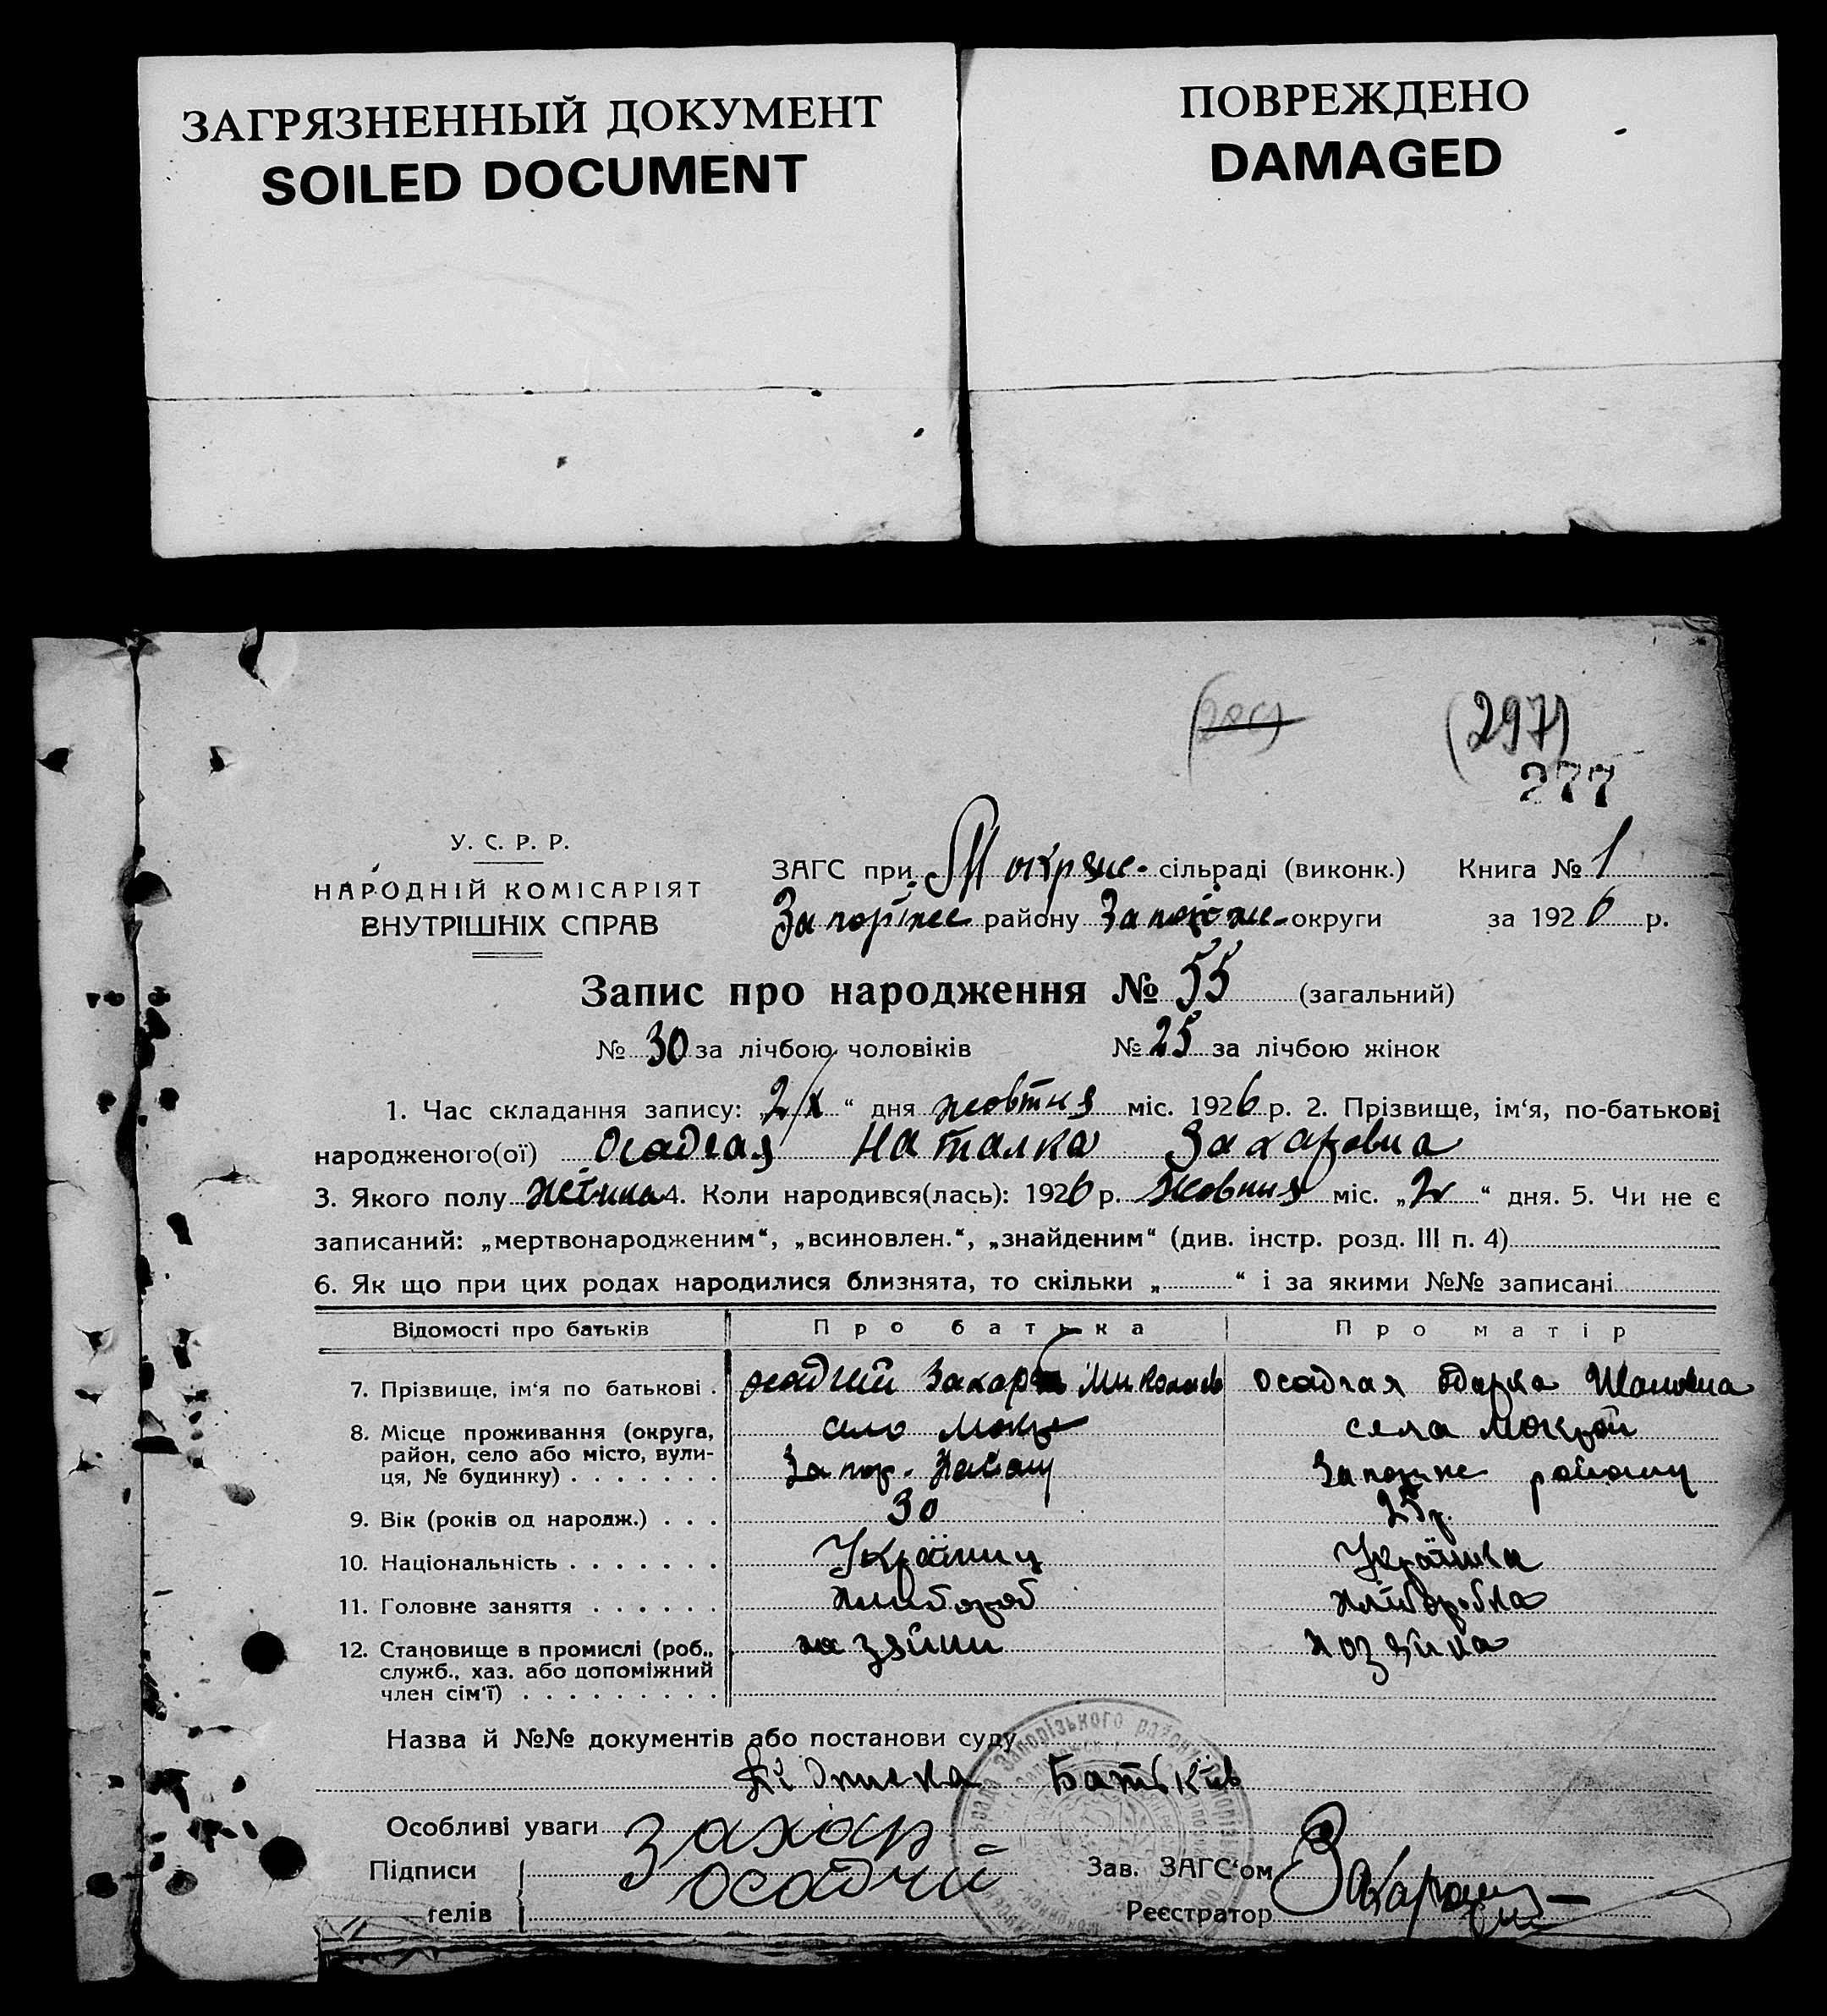 ЗАГРЯЗНЕННЫЙ ДОКУМЕНТ
SOILED DOCUMENT
ПОВРЕЖДЕНО
DAMAGED
(297)
277
У. С. Р. Р.
НАРОДНІЙ КОМІСАРІЯТ
ВНУТРІШНІХ СПРАВ
ЗАГС при Мокрянс- сільраді (виконк.) Книга № 1
району округи за 1926 р.
Запис про народження № 55 (загальний)
№ 30 за лічбою чоловіків № 25 за лічбою жінок
1. Час складання запису: „2/X“ дня жовтня міс. 1926 р. 2. Прізвище, ім‘я, по-батькові
народженого(ої) Осадчая Наталка Захаровна
3. Якого полу 4. Коли народився(лась): 1926 р. міс. „ “ дня. 5. Чи не є
записаний: „мертвонародженим“, „всиновлен.“, „знайденим“ (див. інстр. розд. III п. 4)
6. Як що при цих родах народилися близнята, то скільки „ “ і за якими №№ записані
Відомості про батьків Про батька Про матір
7. Прізвище, ім‘я по батькові . Осадчий Захар Миколаев Осадчая Одарка
8. Місце проживання (округа, село села Мокрой
район, село або місто, вули-
ця, № будинку) . . . . . . . Запор. району
9. Вік (років од народж.) . . . 30 25 р.
10. Національність . . . . . . . Українец Українка
11. Головне заняття . . . . . . хлибороб хлиборобка
12. Становище в промислі (роб., хазяйин хозяйка
служб., хаз. або допоміжний
член сім‘ї) . . . . . . . . .
Назва й №№ документів або постанови суду
Батьків
Особливі уваги
Захар
Підписи Осадчий Зав. ЗАГС‘ом
телів Реєстратор